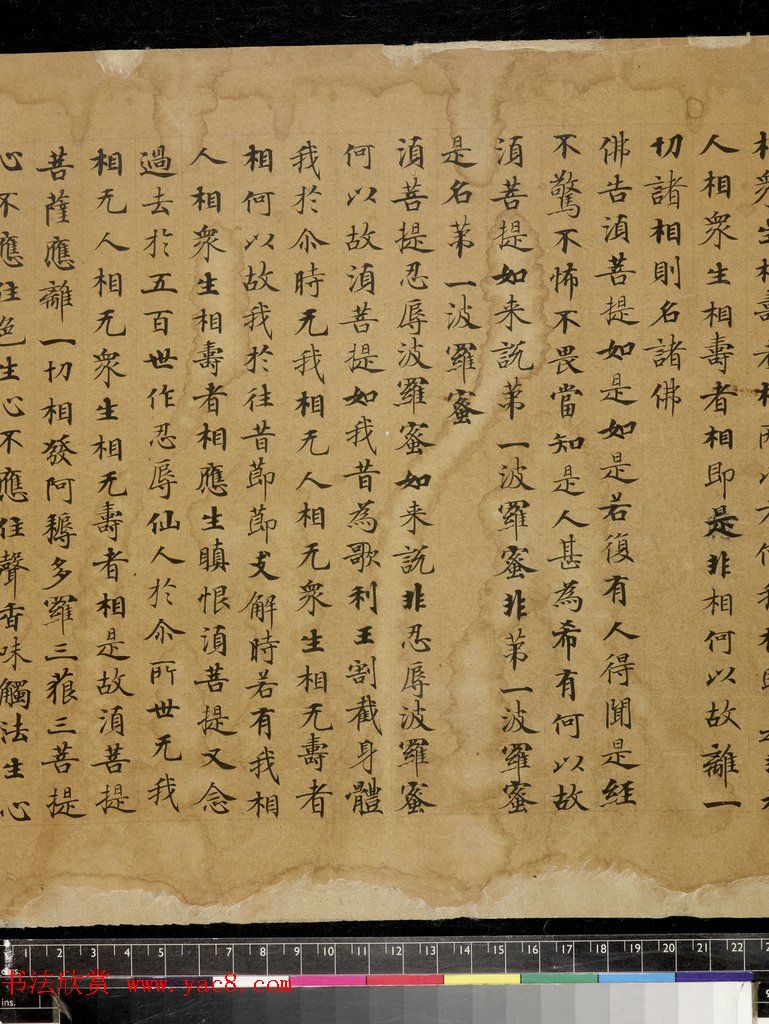 相眾生相壽者相
人相眾生相壽者相即是非相何以故離一
切諸相則名諸佛
佛告湏菩提如是如是若復有人得聞是經
不驚不怖不畏當知是人甚為希有何以故
湏菩提如来說苐一波羅蜜非苐一波羅蜜
是名苐一波羅蜜
湏菩提忍辱波羅蜜如来說非忍辱波羅蜜
何以故湏菩提如我昔為歌利王割截身體
我於尒時无我相无人相无眾生相无壽者
相何以故我於往昔節節支解時若有我相
人相眾生相壽者相應生瞋恨湏菩提又念
過去於五百世作忍辱仙人於尒所世无我
相无人相无眾生相无壽者相是故湏菩提
菩薩應離一切相發阿耨多羅三藐三菩提
心不應住色生心不應住聲香味觸法生心
1 2 3 4 5 7 8 9 10 11 12 13 14 15 16 17 18 19 20 21 22
cms.
书法欣赏 www.yac8.com
ins.